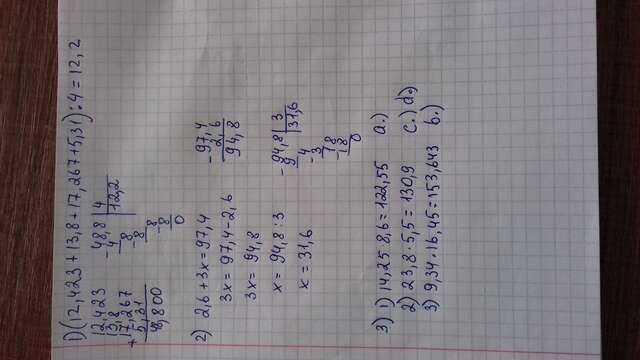 1) (12,423 + 13,8 + 17,267 + 5,31) : 4 = 12,2
12,423
13,8
+ 17,267
5,31
48,800
- 48,8 | 4
4 | 12,2
8
- 8
8
- 8
0
2) 2,6 + 3x = 97,4
3x = 97,4 - 2,6
3x = 94,8
x = 94,8 : 3
x = 31,6
- 97,4
2,6
94,8
- 94,8 | 3
9 | 31,6
- 4
3
18
- 18
0
3) 1) 14,25 8,6 = 122,55 a.)
2) 23,8 · 5,5 = 130,9 c.) d.)
3) 9,34 · 16,45 = 153,643 b.)